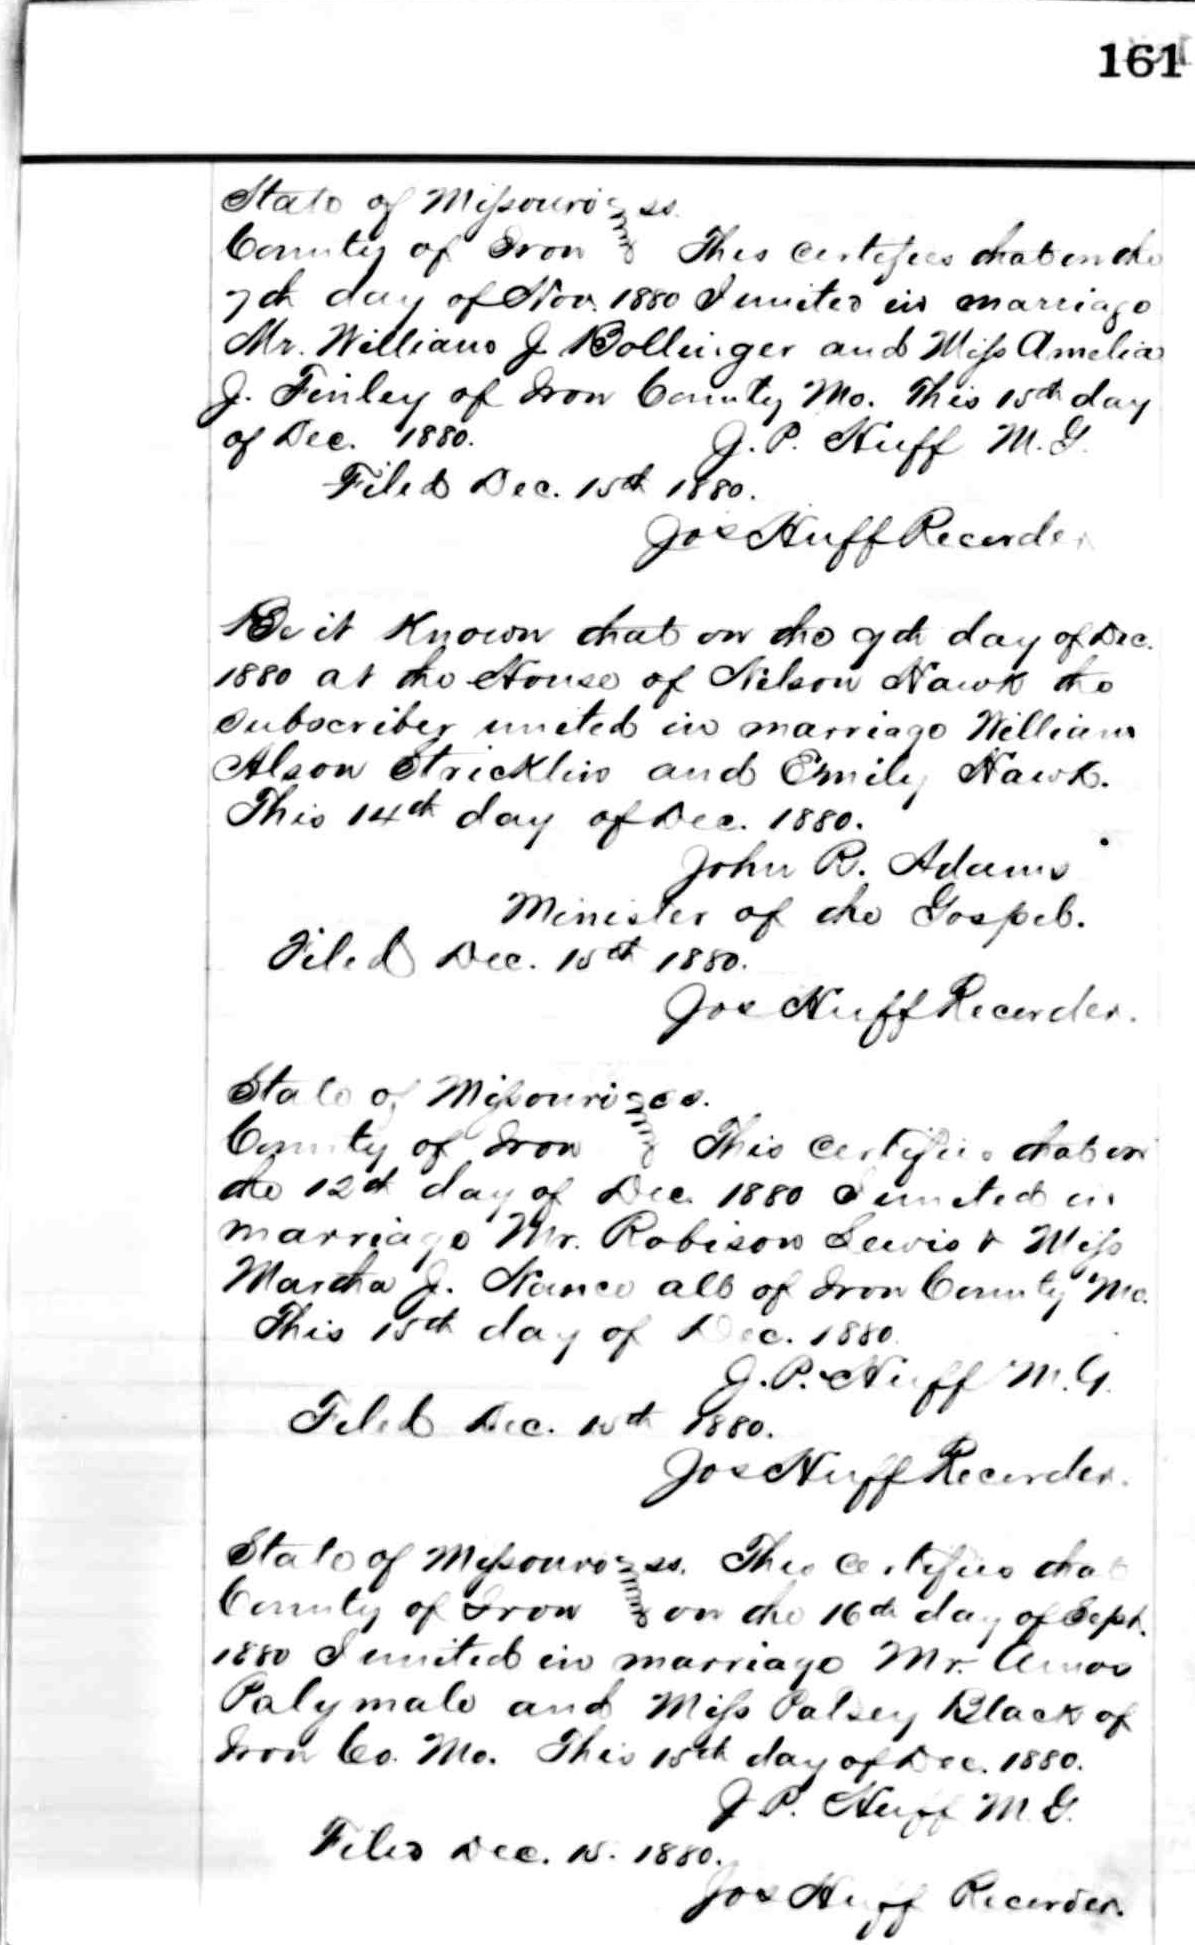 161
State of Missouri ss.
County of Iron This certifies that on the
7th day of Nov. 1880 I united in marriage
Mr. William J Bollinger and Miss Amelia
J. Finley of Iron County Mo. This 15th day
of Dec. 1880. J. P. Huff M. G.
Filed Dec. 15th 1880.
Jos Huff Recorder
Be it Known that on the 9th day of Dec.
1880 at the House of Nelson Hawk the
subscriber united in marriage William
Alson Stricklin and Emily Hawk.
This 14th day of Dec. 1880.
John R. Adams
Minister of the Gospel.
Filed Dec. 15th 1880.
Jos Huff Recorder.
State of Missouri ss.
County of Iron This certifies that on
the 12th day of Dec. 1880 I united in
marriage Mr. Robison Lewis & Miss
Martha J. Nance all of Iron County Mo.
This 15th day of Dec. 1880
J. P. Huff M. G.
Filed Dec. 15th 1880.
Jos Huff Recorder.
State of Missouri ss. This certifies that
County of Iron on the 16th day of Sept.
1880 I united in marriage Mr. Amos
Polymale and Miss Patsey Black of
Iron Co. Mo. This 15th day of Dec. 1880.
J. P. Huff M. G.
Filed Dec. 15. 1880.
Jos Huff Recorder.